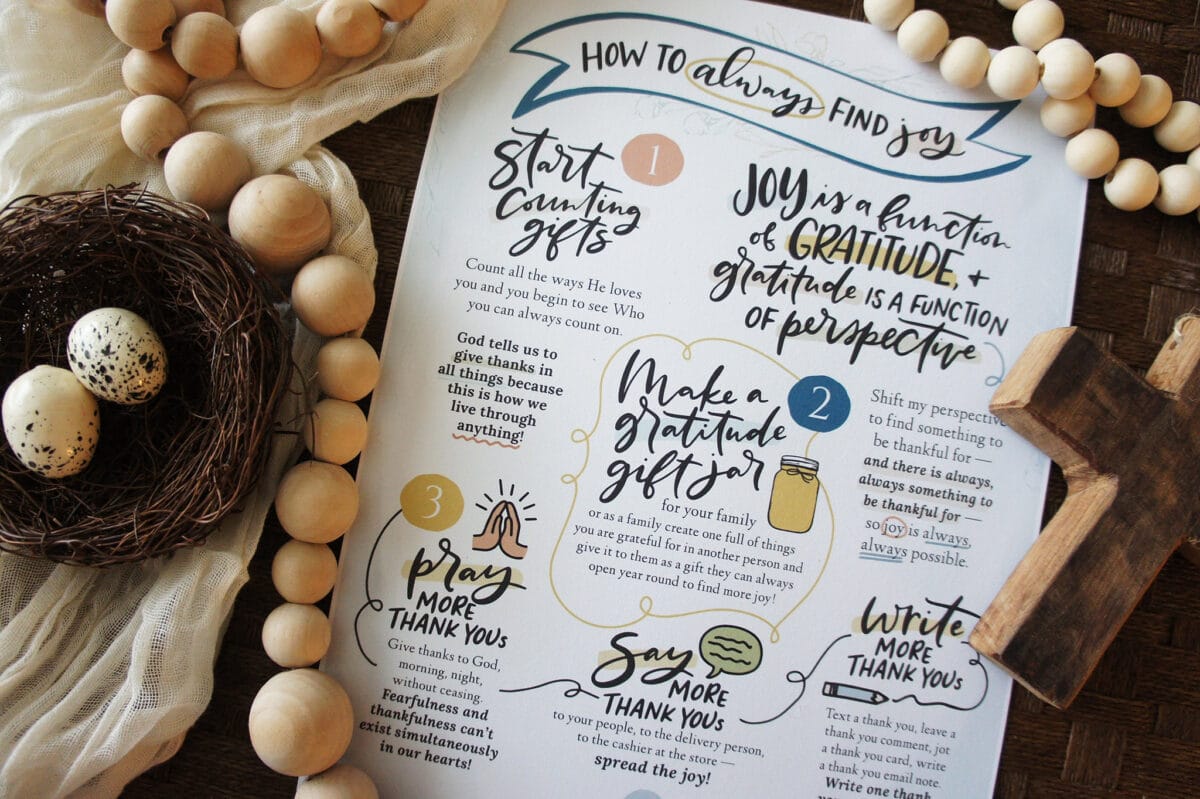 HOW TO always FIND joy
1
Start
Counting
gifts
Count all the ways He loves
you and you begin to see Who
you can always count on.
God tells us to
give thanks in
all things because
this is how we
live through
anything!
JOY is a function
of GRATITUDE, +
gratitude IS A FUNCTION
OF perspective
2
Make a
gratitude
gift jar
for your family
or as a family create one full of things
you are grateful for in another person and
give it to them as a gift they can always
open year round to find more joy!
Shift my perspective
to find something to
be thankful for —
and there is always,
always something to
be thankful for —
so joy is always,
always possible.
3
pray
MORE
THANK YOUs
Give thanks to God,
morning, night,
without ceasing.
Fearfulness and
thankfulness can't
exist simultaneously
in our hearts!
Say
MORE
THANK YOUs
to your people, to the delivery person,
to the cashier at the store —
spread the joy!
Write
MORE
THANK YOUs
Text a thank you, leave a
thank you comment, jot
a thank you card, write
a thank you email note.
Write one thank